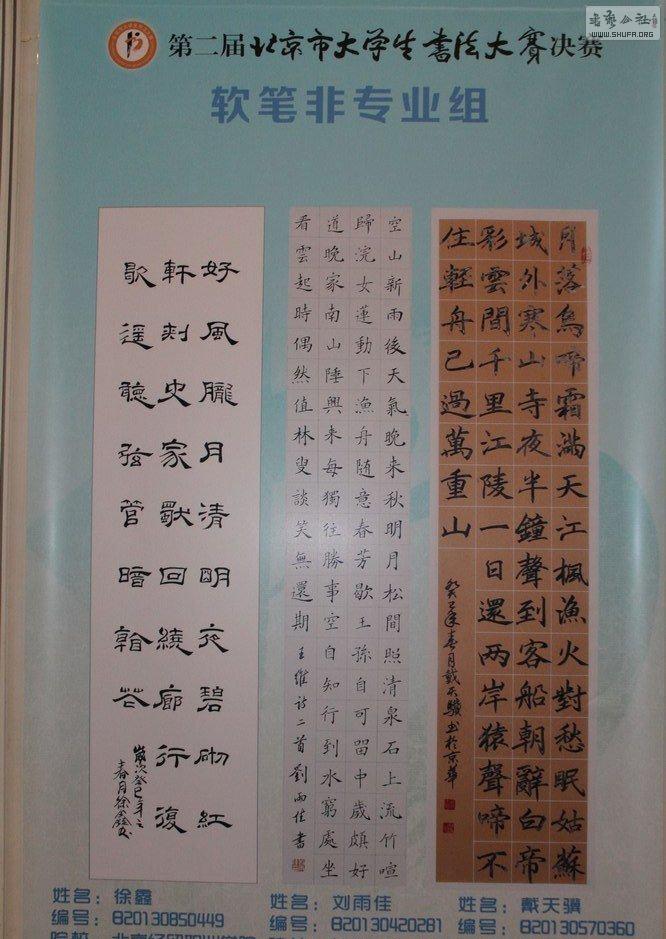 书法公社
WWW.SHUFA.ORG
第二届北京市大学生書法大賽决赛
软笔非专业组
月落烏啼霜滿天江楓漁火對愁眠姑蘇
城外寒山寺夜半鐘聲到客船朝辭白帝
彩雲間千里江陵一日還两岸猿聲啼不
住輕舟已過萬重山
癸巳年春月戴天驥书於京華
空山新雨後天氣晚来秋明月松間照清泉石上流竹喧
歸浣女蓮動下漁舟随意春芳歇王孫自可留中歲頗好
道晚家南山陲興来每獨往勝事空自知行到水窮處坐
看雲起時偶然值林叟談笑無還期王維诗二首劉雨佳書
好風朧月清明夜碧砌紅
軒刺史家獨回繞廊行復
歇遥聽弦管暗看花
歲次癸巳年之
春月徐鑫书
姓名：徐鑫
编号：820130850449
姓名：刘雨佳
编号：820130420281
姓名：戴天骥
编号：820130570360